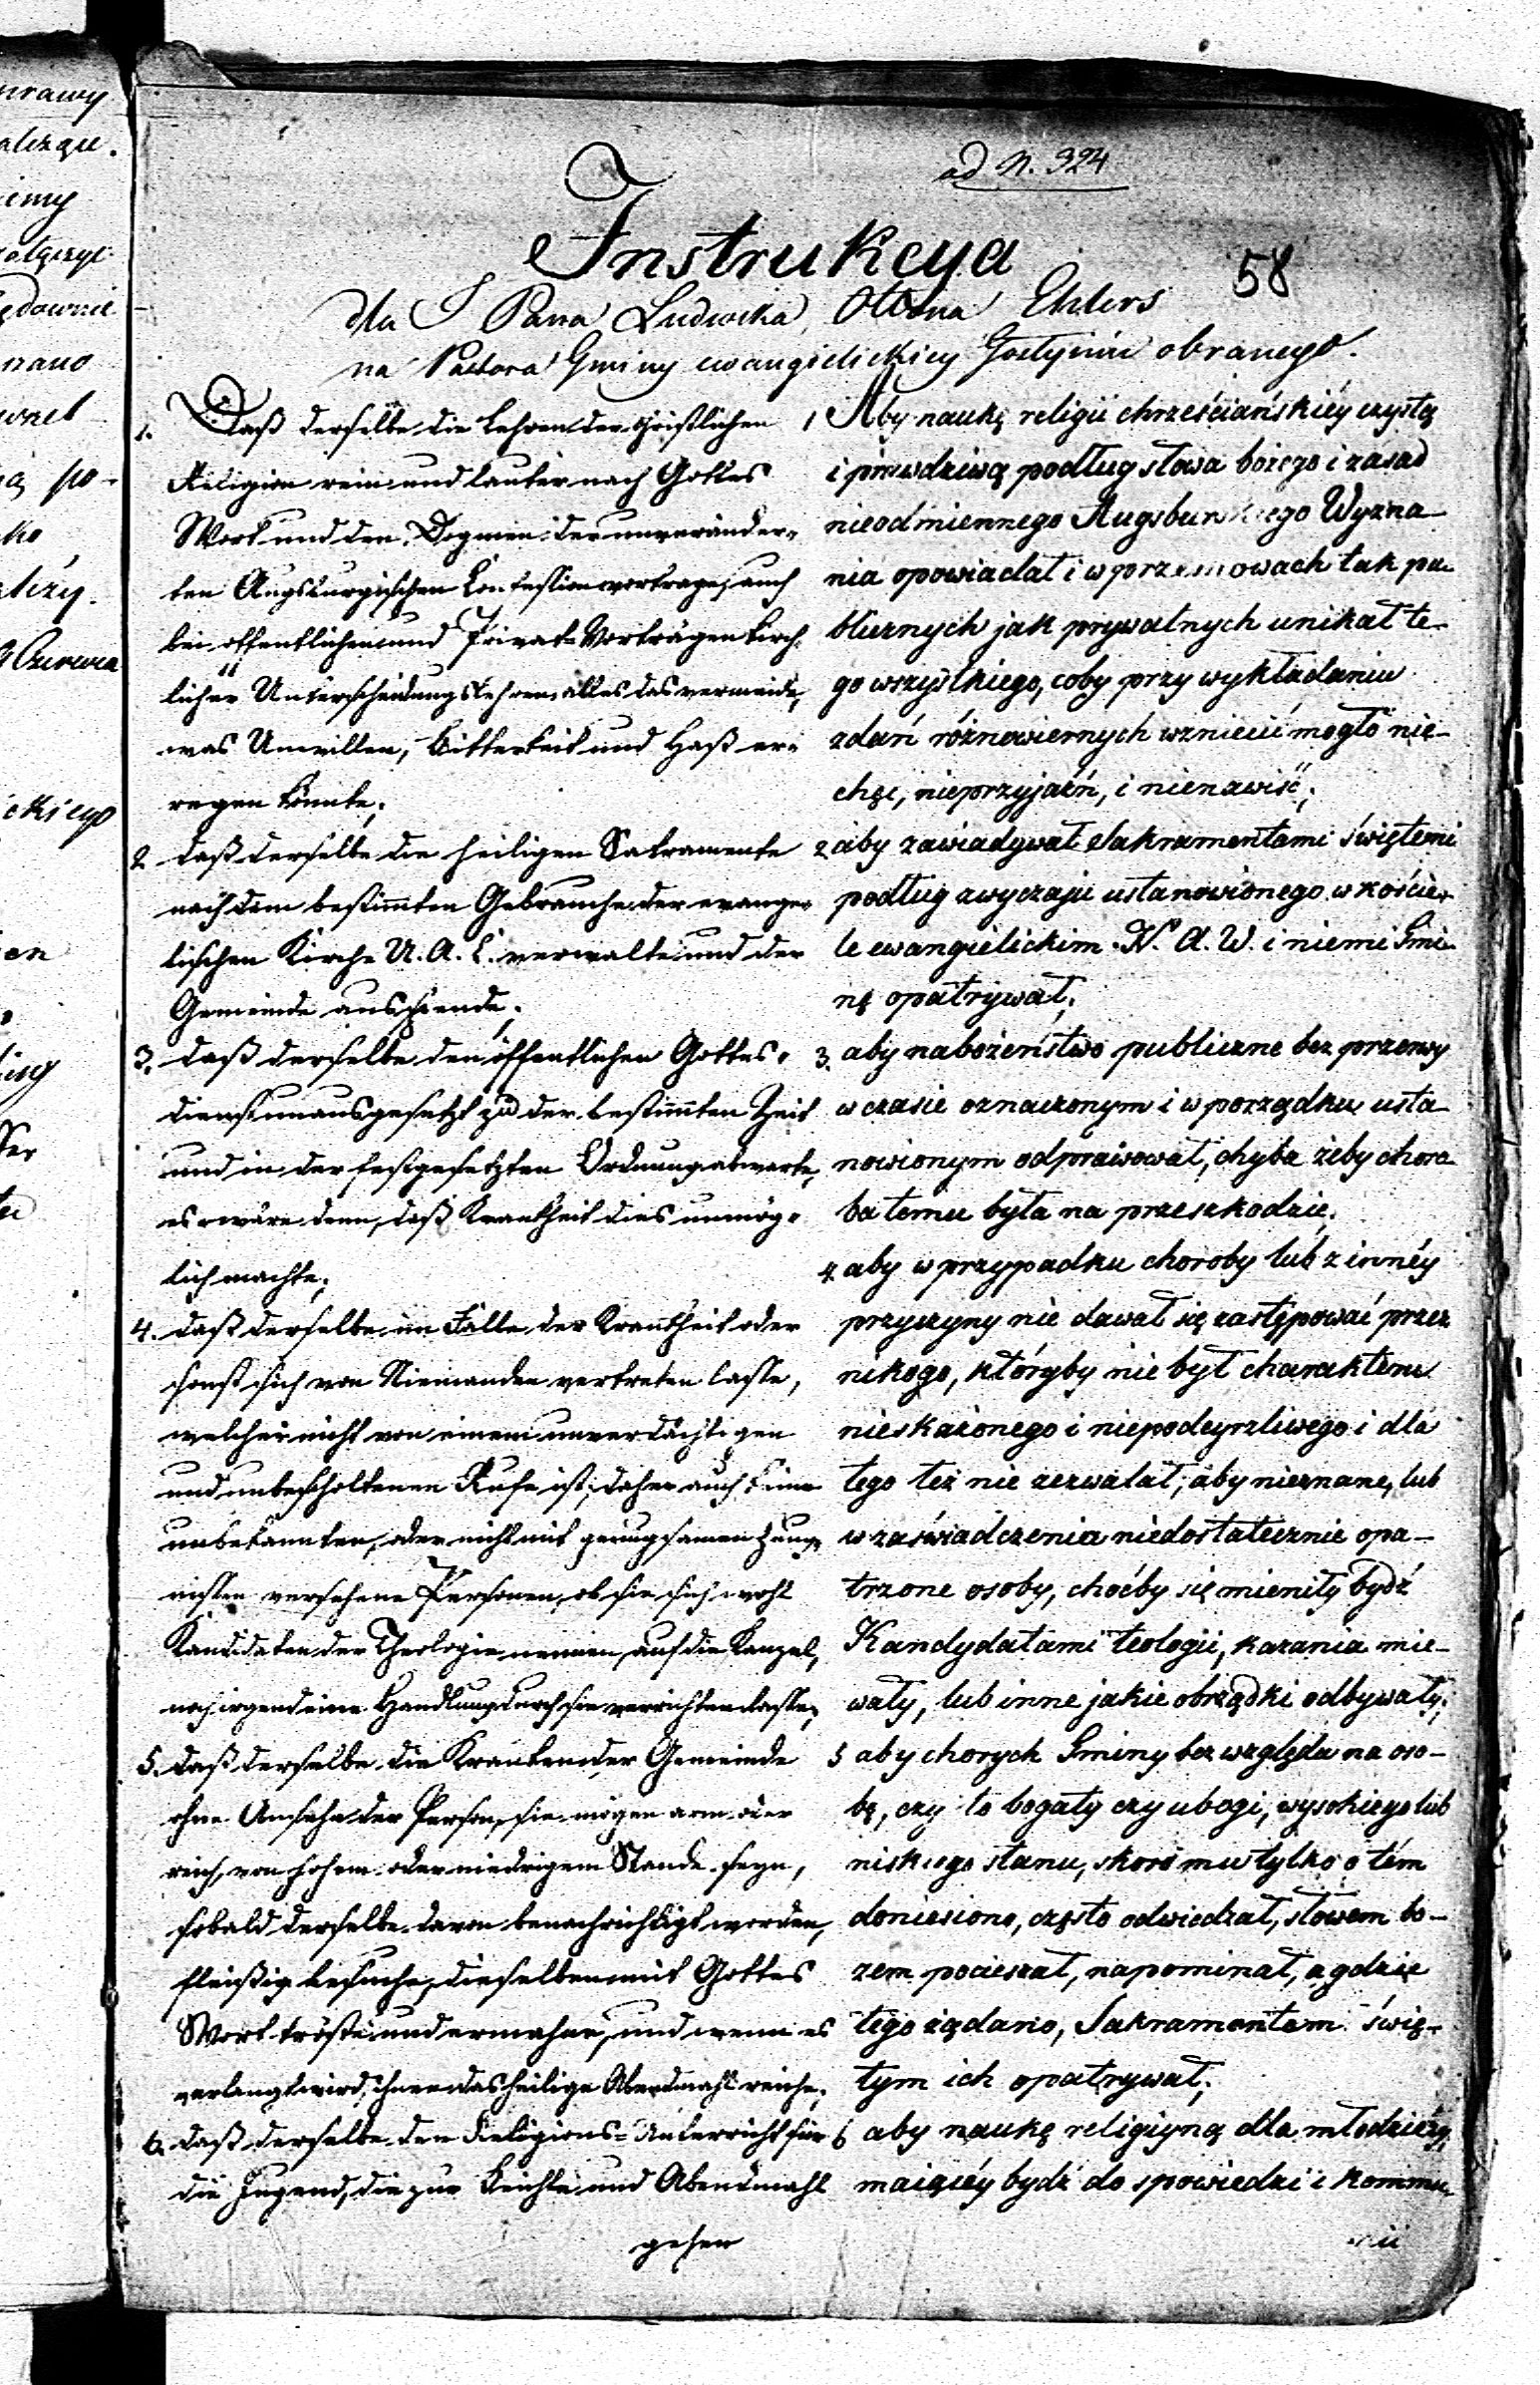 ad N. 324
Instrukcya
58
dla J Pana Ludwika Ottona Ehlers
na Pastora Gminy ewangielickiey Gostynin obranego.
1. Daß derselbe die Lehren der christlichen
Religion rein und lauter nach Gottes
Wort und den Dogmen der unveränder-
ten Augsburgischen Confession vortrage, auch
bei öffentlichen und Privat-Vorträgen kirch-
licher Unterscheidungslehren alles das vermeide,
was Unwillen, Bitterkeit und Haß er-
regen könnte;
2 daß derselbe die heiligen Sakramente
nach dem bestimmten Gebrauche der evange-
lischen Kirche U. A. C. verwalte und der
Gemeinde ausspende;
3. daß derselbe den öffentlichen Gottes-
dienst unausgesetzt zu der bestimmten Zeit
und in der festgesetzten Ordnung abwarte,
es wäre denn, daß Krankheit dies unmög-
lich machte;
4. daß derselbe im Falle der Krankheit oder
sonst sich von Niemanden vertreten lasse,
welcher nicht von einem unverdächtigen
und unbescholtenen Rufe ist; daher auch keine
unbekannten, oder nicht mit genugsamen Zeug-
nissen versehene Personen, ob sie sich wohl
Kandidaten der Theologie nennen, auf die Kanzel,
noch irgend eine Handlung durch sie verrichten lasse;
5. daß derselbe die Kranken der Gemeinde
ohne Ansehn der Person, sie mögen arm oder
reich, von hohem oder niedrigem Stande seyn,
sobald derselbe davon benachrichtigt worden,
fleißig besuche, dieselben mit Gottes
Wort tröste und ermahne, und wenn es
verlangt wird, ihnen das heilige Abendmahl reiche;
6. daß derselbe den Religions-Unterricht für
die Jugend, die zur Beichte und Abendmahl
gehen
1 Aby naukę religii chrześciańskiéy czystą
i prawdziwą podług słowa bożego i zasad
nieodmiennego Augsburskiego Wyzna-
nia opowiadał i w przemowach tak pu-
blicznych jak prywatnych unikał te-
go wszystkiego, coby przy wykładaniu
zdań różnowiernych wzniecić mogło nie-
chęć, nieprzyjaźń, i nienawiść;
2 aby zawiadywał Sakramentami świętemi
podług zwyczaju ustanowionego w koście-
le ewangielickim N. A. W. i niemi Gmi-
nę opatrywał;
3. aby nabożeństwo publiczne bez przerwy
w czasie oznaczonym i w porządku usta-
nowionym odprawował, chyba żeby choro-
ba temu była na przeszkodzie;
4. aby w przypadku choroby lub z innéy
przyczyny nie dawał się zastępować przez
nikogo, któryby nie był charakteru
nieskażonego i niepodeyrzliwego i dla
tego też nie zezwalał, aby nieznane, lub
w zaświadczenia niedostatecznie opa-
trzone osoby, choćby się mieniły bydź
Kandydatami teologii, kazania mie-
wały, lub inne jakie obrządki odbywały;
5 aby chorych Gminy bez względu na oso-
bę, czy to bogaty czy ubogi, wysokiego lub
niskiego stanu, skoro mu tylko o tém
doniesiono, często odwiedzał, słowem bo-
żem pocieszał, napominał, a gdzie
tego żądano, Sakramentem świę-
tym ich opatrywał;
6 aby naukę religiyną dla młodzieży,
maiącéy bydź do spowiedzi i kommu-
nii